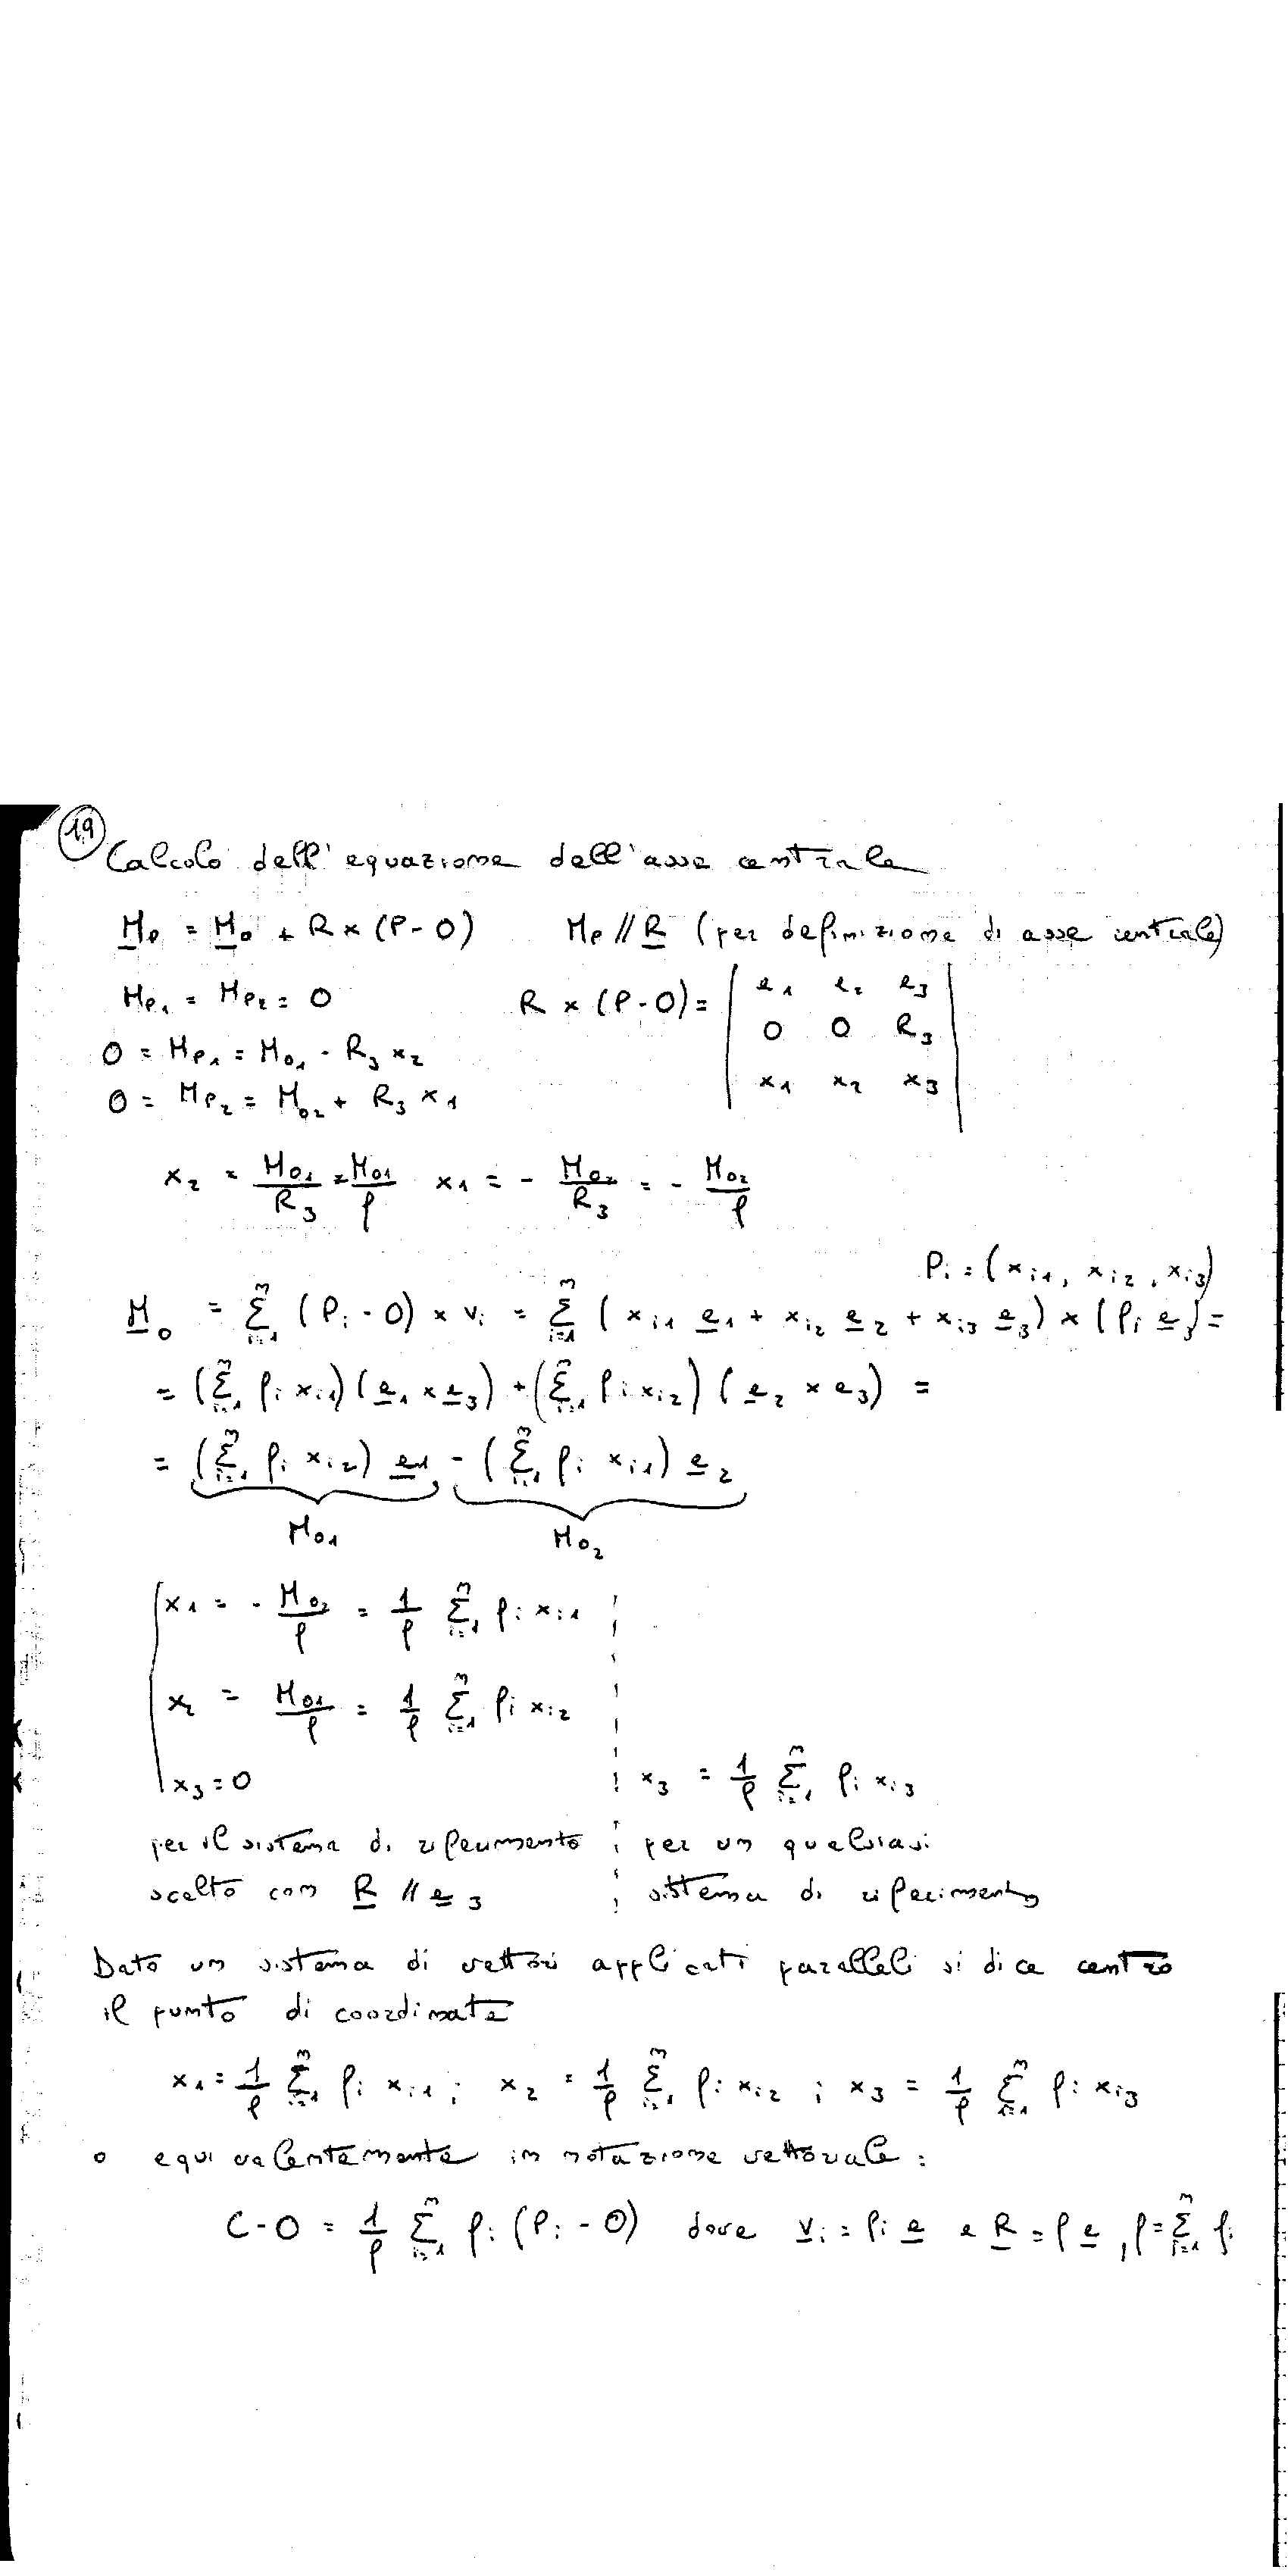 19
Calcolo dell'equazione dell'asse centrale
M_P = M_O + R × (P - O)    M_P // R (per definizione di asse centrale)
M_P1 = M_P2 = 0    R × (P - O) = | e1 e2 e3 |
| 0 0 R3 |
| x1 x2 x3 |
0 = M_P1 = M_O1 - R3 x2
0 = M_P2 = M_O2 + R3 x1
x2 = M_O1/R3 = M_O1/ρ    x1 = - M_O2/R3 = - M_O2/ρ
Pi = (xi1, xi2, xi3)
M_O = Σ_{i=1}^{n} (Pi - O) × vi = Σ_{i=1}^{n} (xi1 e1 + xi2 e2 + xi3 e3) × (ρi e3) =
= (Σ_{i=1}^{n} ρi xi1) (e1 × e3) + (Σ_{i=1}^{n} ρi xi2) (e2 × e3) =
= (Σ_{i=1}^{n} ρi xi2) e1 - (Σ_{i=1}^{n} ρi xi1) e2
M_O1    M_O2
x1 = - M_O2/ρ = 1/ρ Σ_{i=1}^{n} ρi xi1
x2 = M_O1/ρ = 1/ρ Σ_{i=1}^{n} ρi xi2
x3 = 0    x3 = 1/ρ Σ_{i=1}^{n} ρi xi3
per il sistema di riferimento    per un qualsiasi
scelto con R // e3    sistema di riferimento
Dato un sistema di vettori applicati paralleli si dice centro
il punto di coordinate
x1 = 1/ρ Σ_{i=1}^{n} ρi xi1 ; x2 = 1/ρ Σ_{i=1}^{n} ρi xi2 ; x3 = 1/ρ Σ_{i=1}^{n} ρi xi3
o equivalentemente in notazione vettoriale:
C - O = 1/ρ Σ_{i=1}^{n} ρi (Pi - O) dove vi = ρi e e R = ρ e , ρ = Σ_{i=1}^{n} ρi